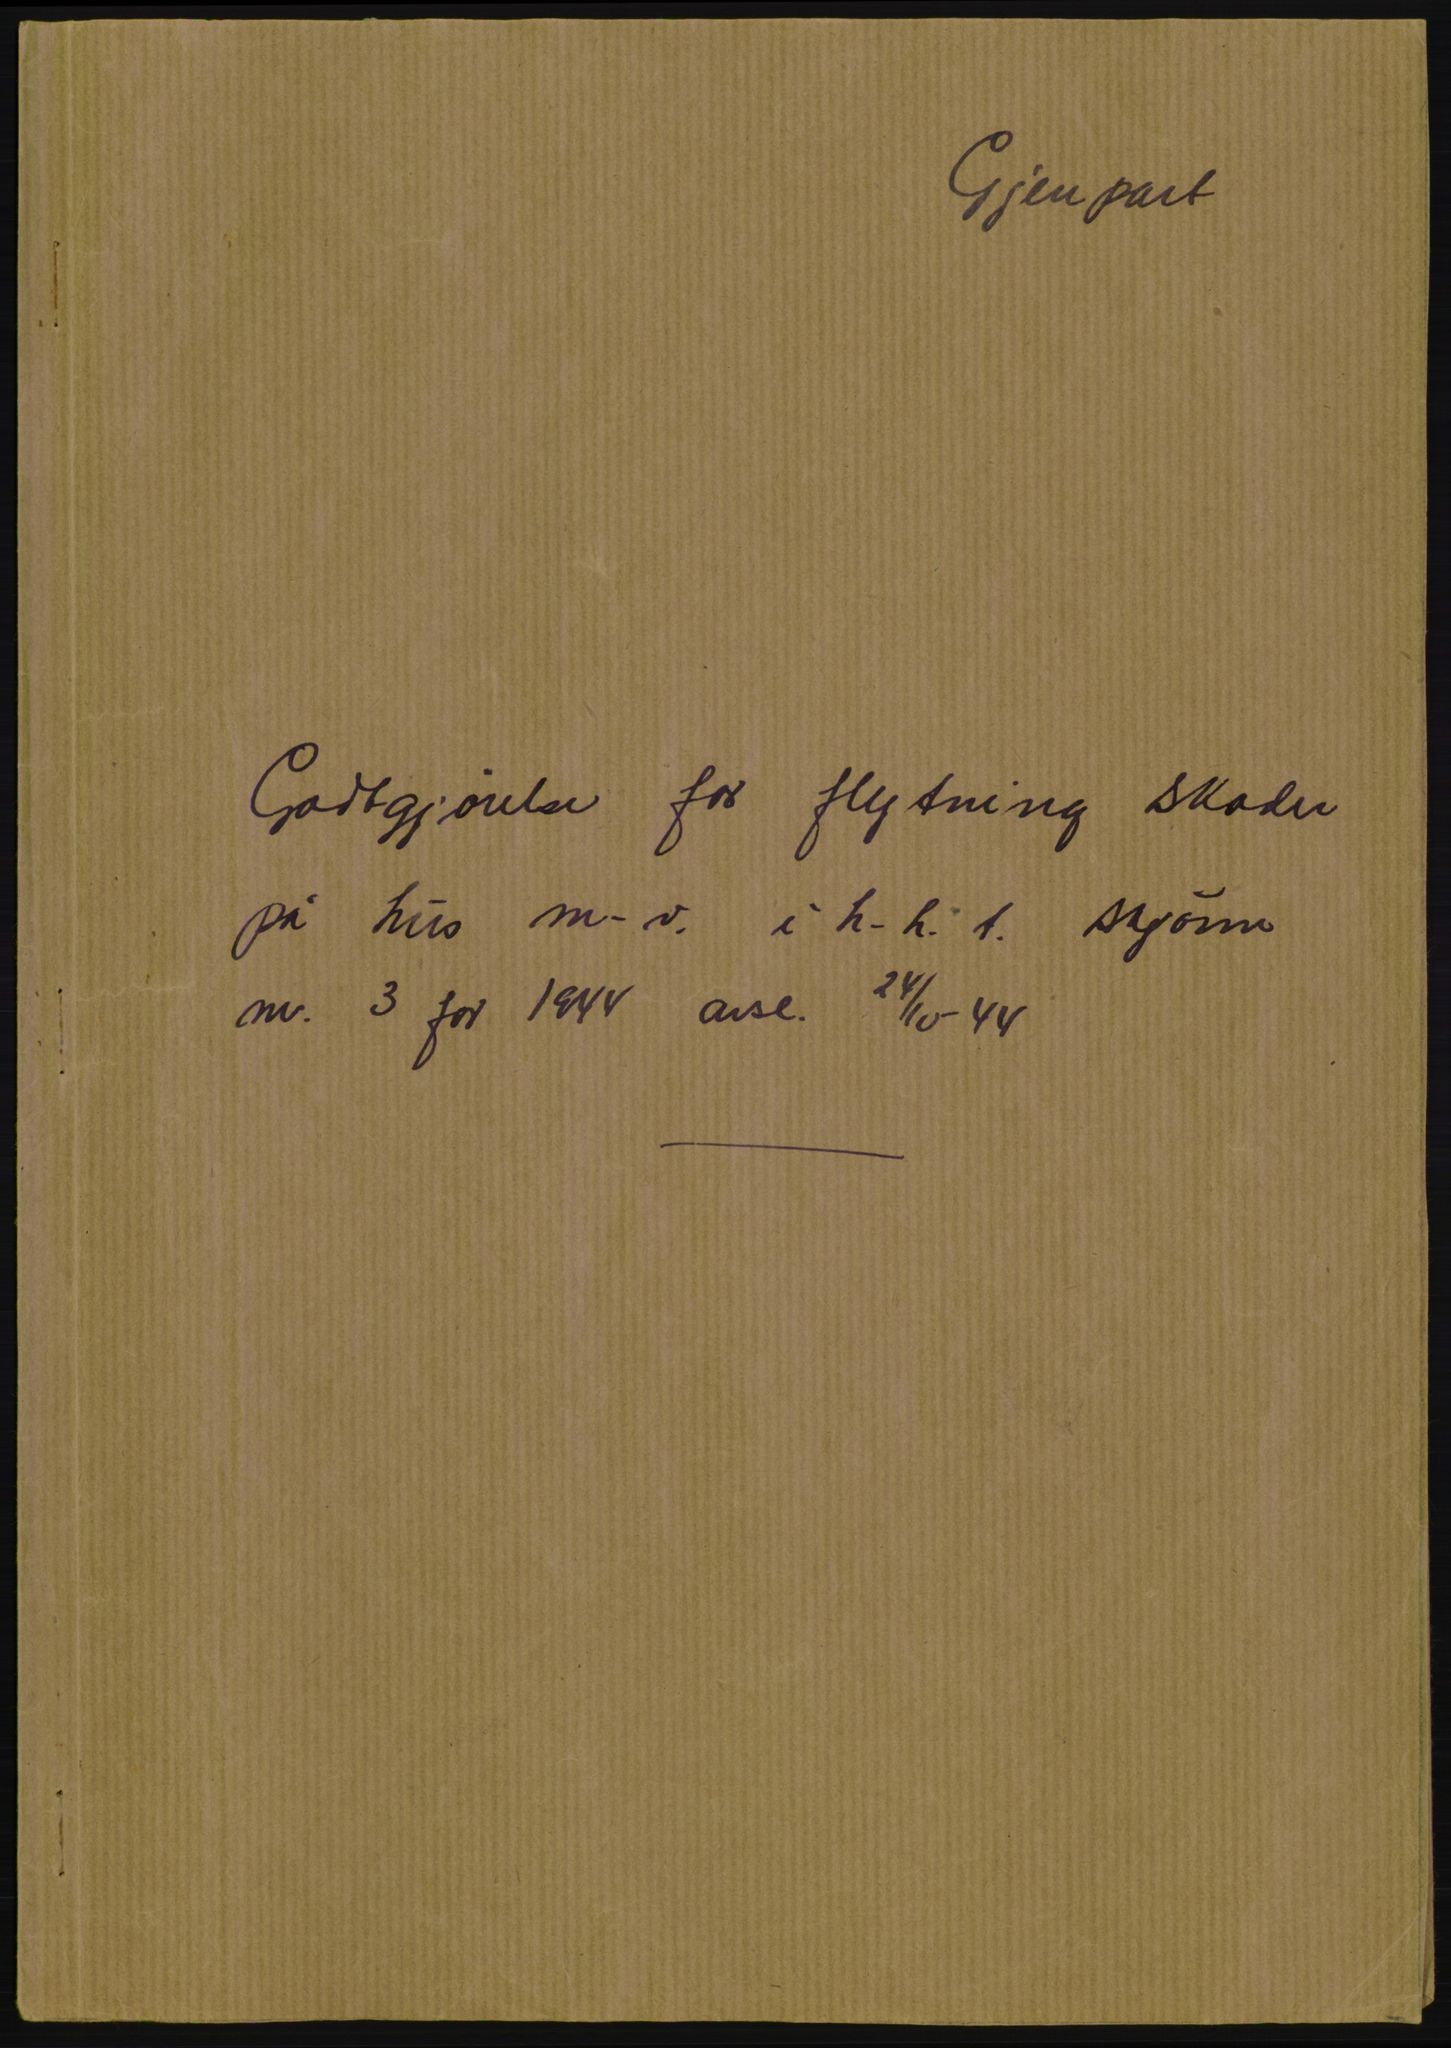 Gjenpart
Godtgjörelse for flytning skader
på hus m.v. i h.h.t. skjönn
nr. 3 for 1944 avsl. 24/10-44